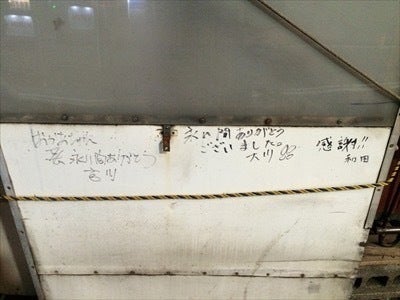 永い間ありがとう
宮川
永い間ありがとう
ございました。
大川
感謝!!
和田